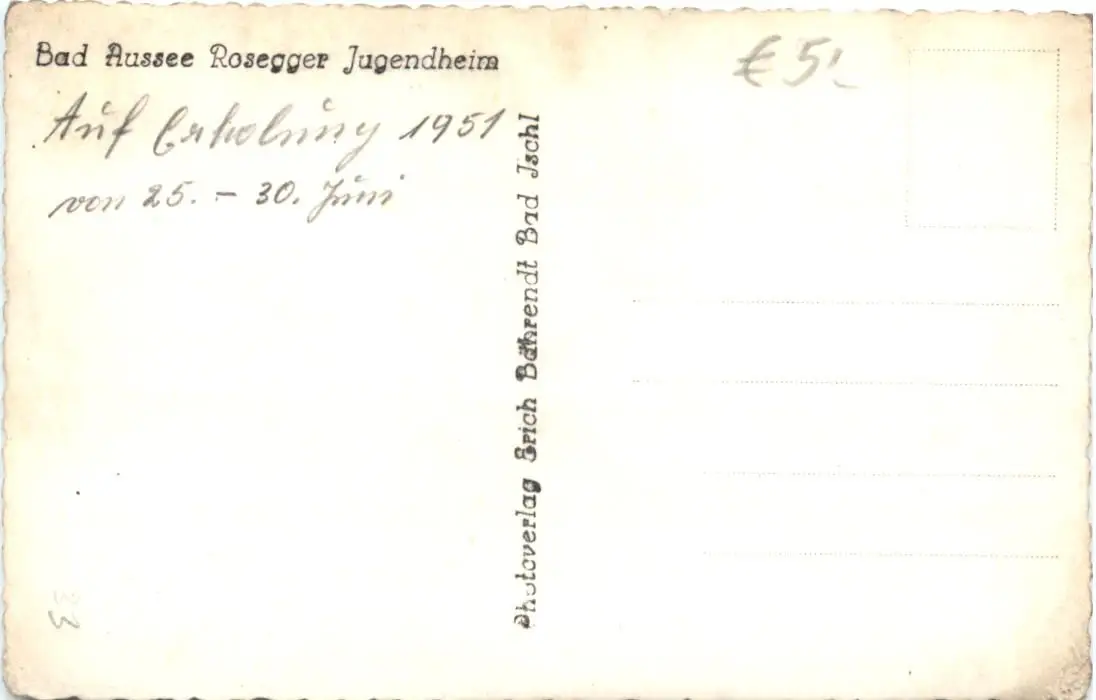 Bad Aussee Rosegger Jugendheim
Auf Erholung 1951
von 25. - 30. Juni
€ 5.-
Photoverlag Erich Bährendt Bad Jschl